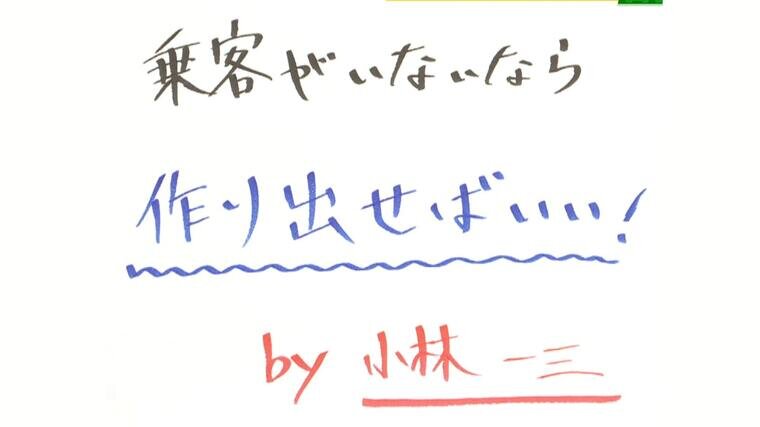 乗客がいないなら
作り出せばいい!
by 小林一三